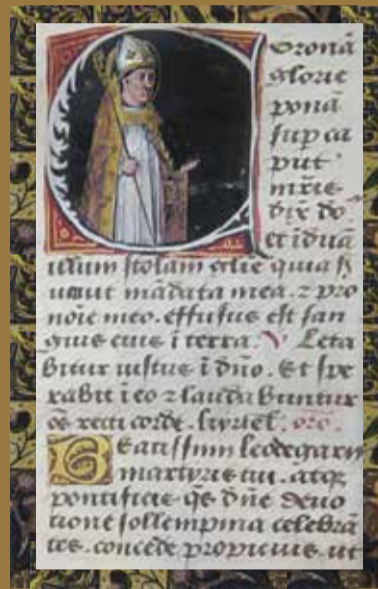 Coronā
glorie
ponā
sup ca
put
mr̄ie
dix̄ do
et īduā
illum stolam glie quia
mādata mea. ⁊ pro
noīe meo. effusus est san
guis eius ī terra. V Leta
bitur iustus ī dn̄o. Et spe
rabit ī eo ⁊ laudabuntur
oēs recti corde. kyriel. orō.
Beatissimi leodegarii
martyris tui. atqꝫ
pontificis qs dn̄e deuo
tione sollempnia celebrā
tes. concede propicius. ut